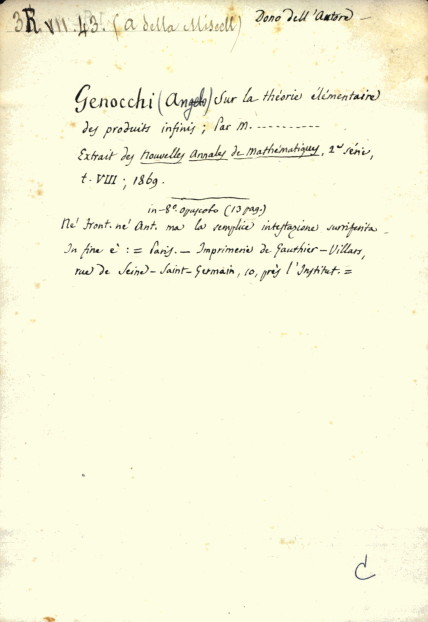 3R VII. 43. (a della Miscell)
Dono dell'Autore —
Genocchi (Angelo) Sur la théorie élémentaire
des produits infinis ; Par M. ----------
Extrait des Nouvelles Annales de Mathématiques, 2e série,
t. VIII ; 1869.
in-8° opuscolo (13 pag.)
Né Front. né Ant. ma la semplice intestazione surriferita.
In fine è : = Paris. — Imprimerie de Gauthier-Villars,
rue de Seine-Saint-Germain, 10, près l'Institut. =
C